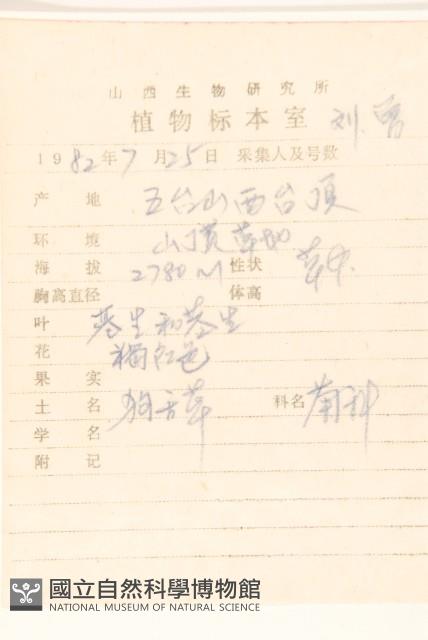 山西生物研究所
植物标本室 刘
1982年7月25日 采集人及号数
产地 五台山西台顶
环境 山顶草地
海拔 2780m 性状 草本
胸高直径 体高
叶 基生和茎生
花 橘红色
果实
土名 狗舌草 科名 菊科
学名
附记
國立自然科學博物館
NATIONAL MUSEUM OF NATURAL SCIENCE